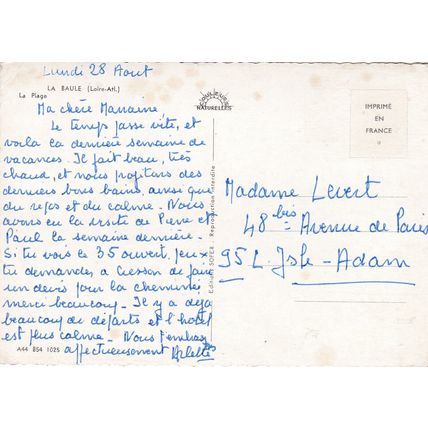 Lundi 28 Aout
LA BAULE (Loire-Atl.)
La Plage
Ma chère Marraine
Le temps passe vite, et
voilà la dernière semaine de
vacances. Il fait beau, très
chaud, et nous profitons des
derniers bons bains, ainsi que
du repos et du calme. Nous
avons eu la visite de Pierre et
Paul la semaine dernière.
Si tu vois le 35 ouvert, peux
tu demander à de faire
un devis pour la cheminée
merci beaucoup. Il y a déjà
beaucoup de départs et l'hôtel
est plus calme. Nous t'embrassons
affectueusement Arlette
A44 854 1025
COULEURS
NATURELLES
Editions Reproduction interdite
IMPRIMÉ
EN
FRANCE
Madame Levert
48 bis Avenue de Paris
95 L. Isle-Adam